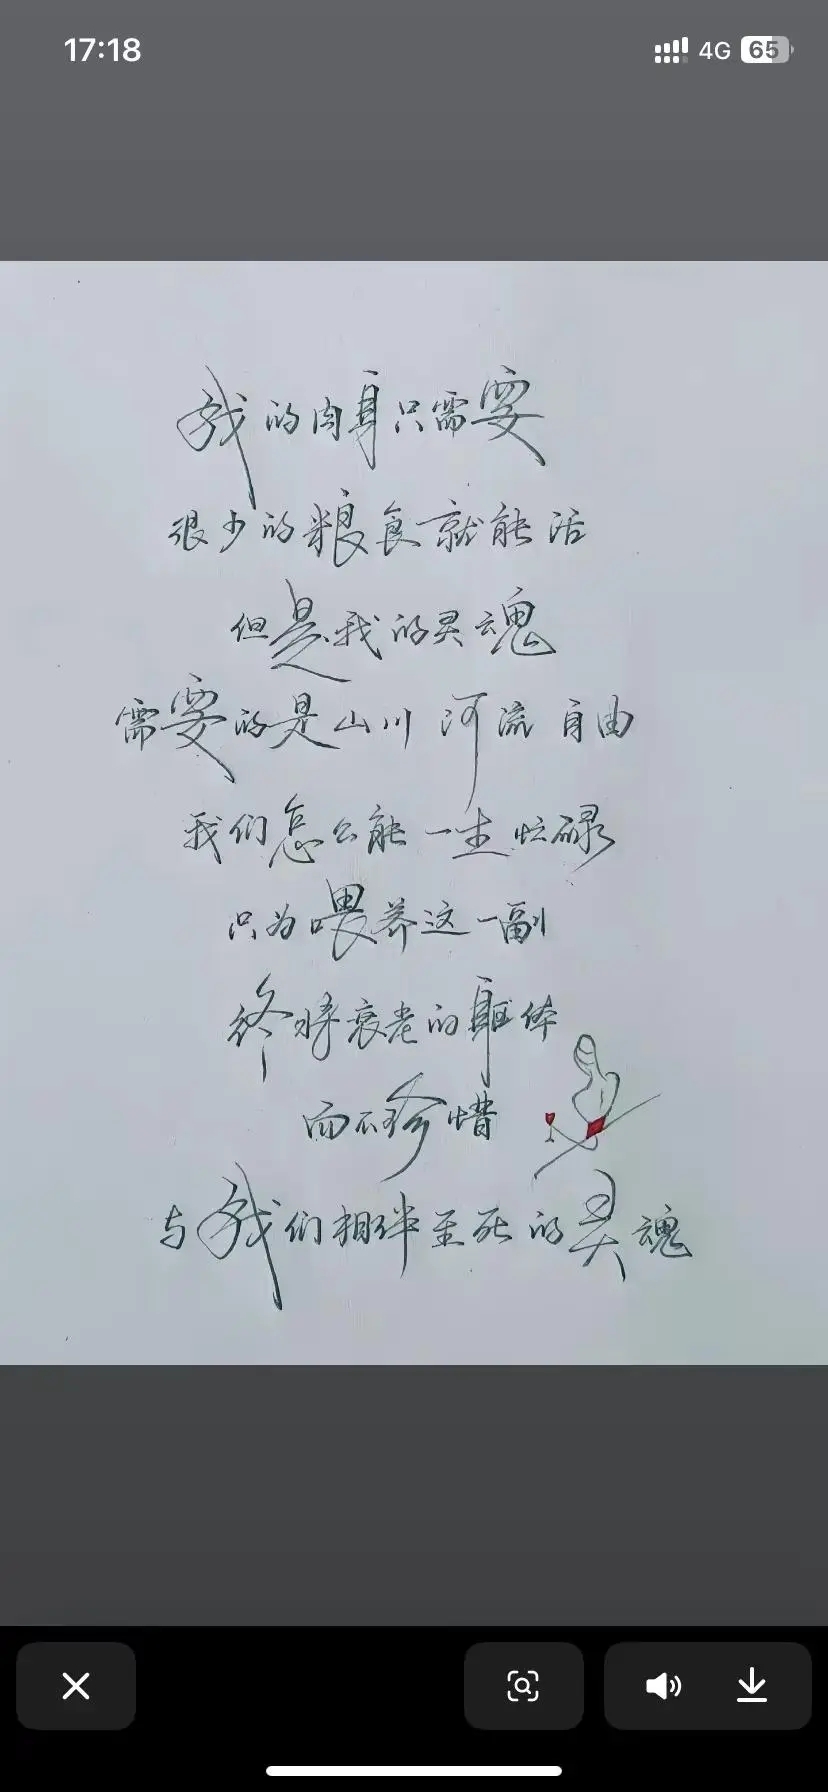 17:18
4G 65
我的肉身只需要
很少的粮食就能活
但是我的灵魂
需要的是山川 河流 自由
我们怎么能一生忙碌
只为喂养这一副
终将衰老的躯体
而不珍惜
与我们相伴至死的灵魂